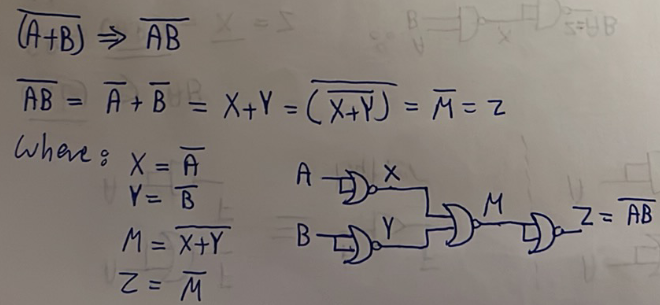 \overline{(A+B)} ⇒ \overline{AB}
\overline{AB} = \overline{A} + \overline{B} = X+Y = \overline{(\overline{X+Y})} = \overline{M} = Z
Where: X = \overline{A}
Y = \overline{B}
M = \overline{X+Y}
Z = \overline{M}
A X
B Y M Z = \overline{AB}